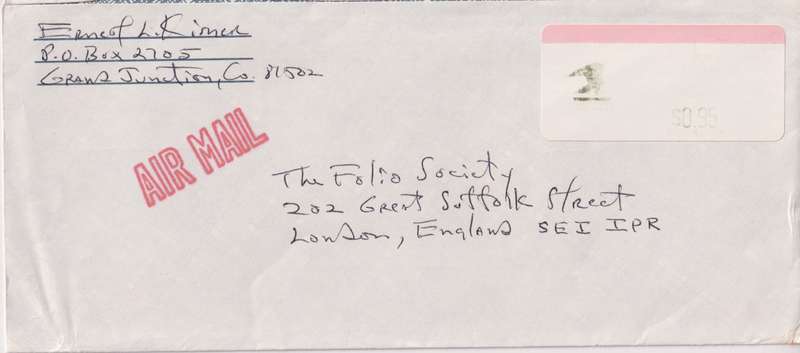 Ernest L. Kirner
P.O. Box 2705
Grand Junction, Co. 81502
$0.95
AIR MAIL
The Folio Society
202 Great Suffolk Street
London, England SE1 1PR